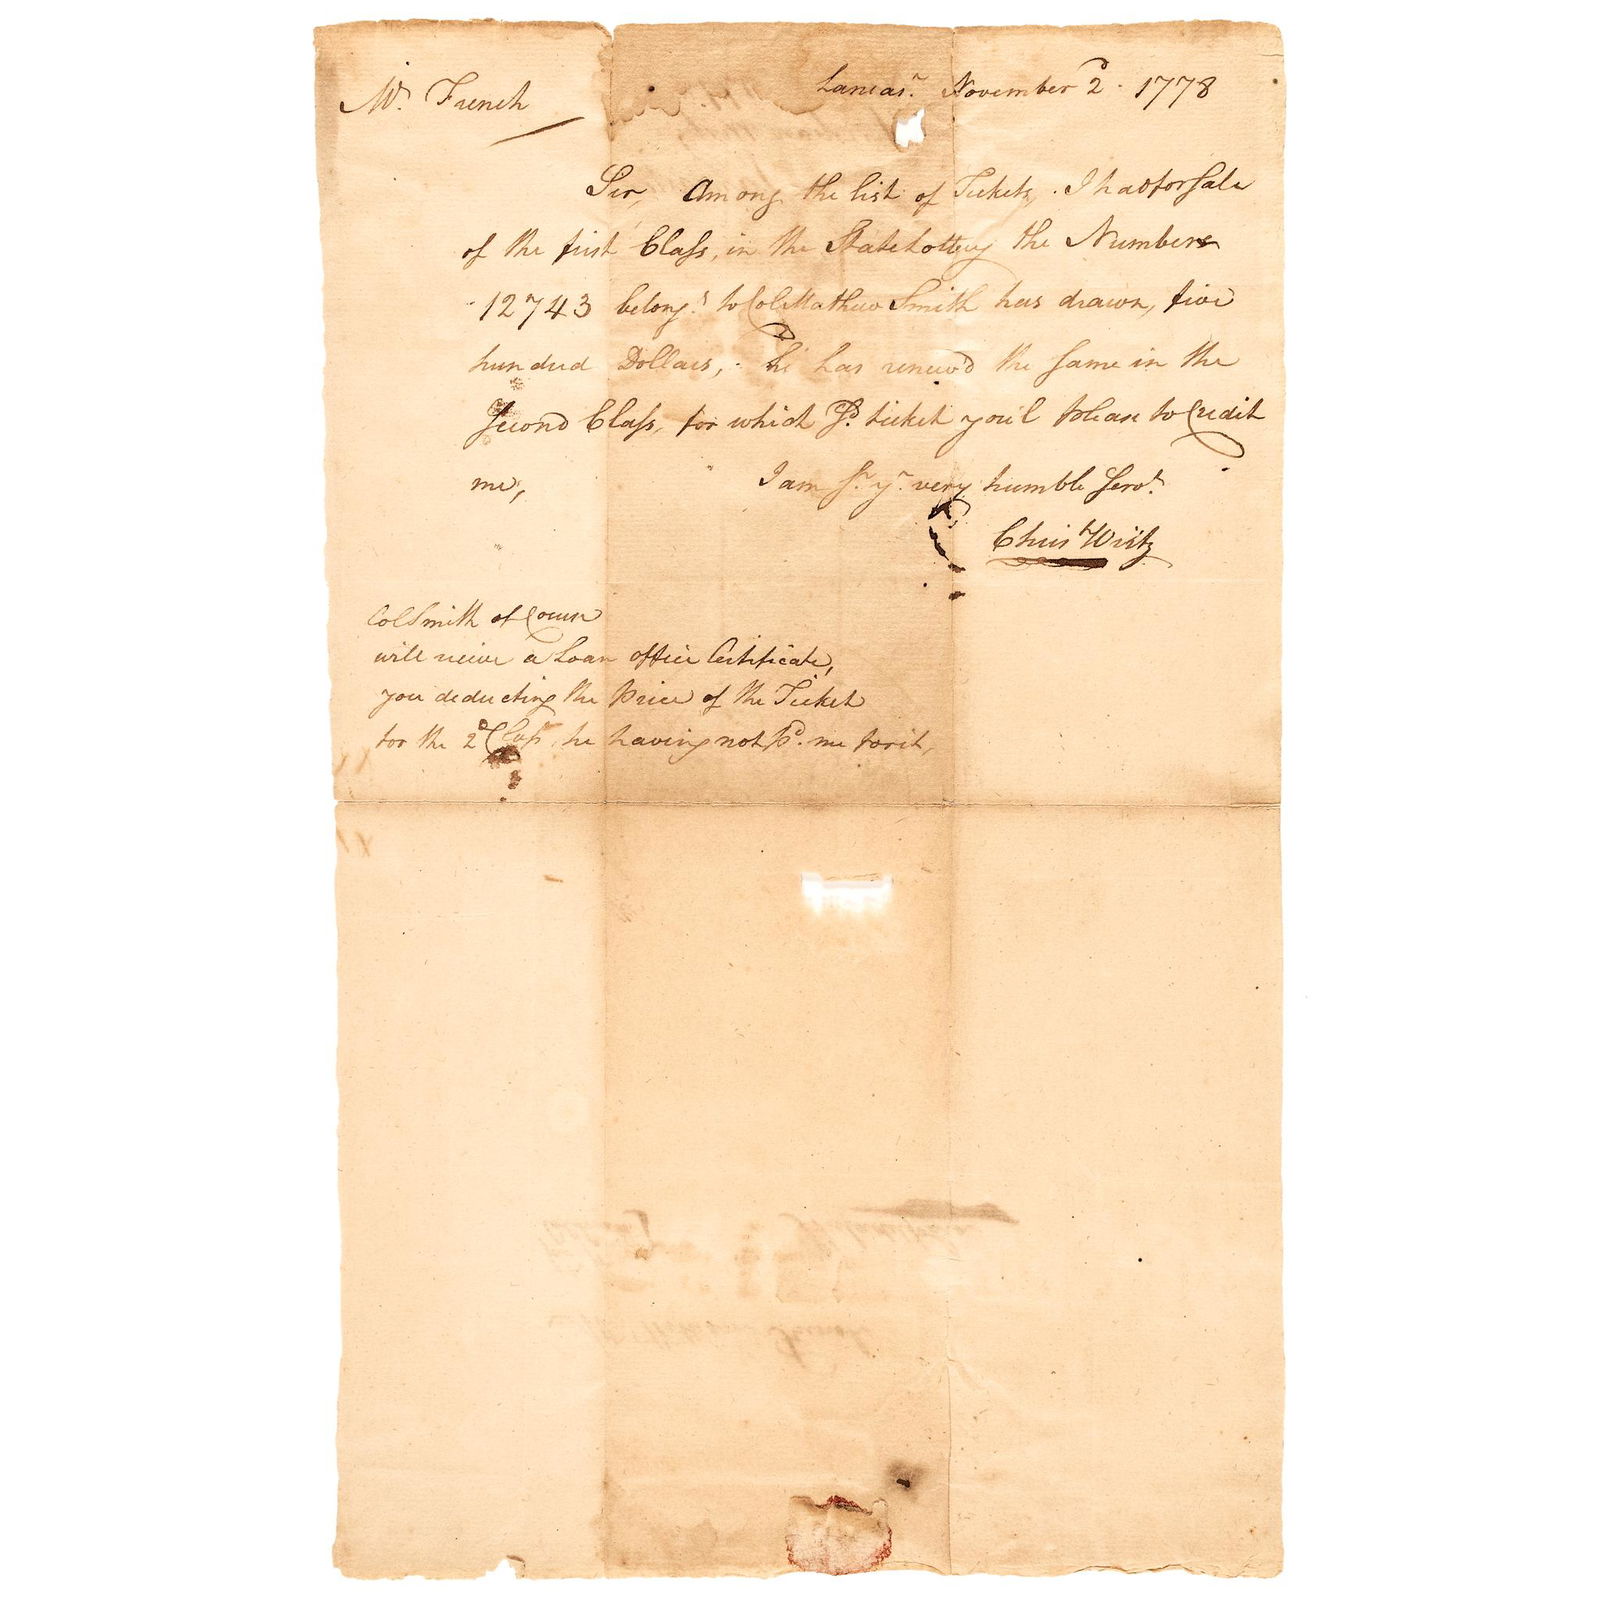 Mr. French
Lancasr. November 2d. 1778
Sir, Among the list of Tickets, I had for Sale
of the first Class, in the State Lottery the Numbers
12743 belongg. to Col Mathew Smith has drawn, five
hundred Dollars, he has renew'd the Same in the
Second Class, for which Sd. ticket you'l please to Credit
me,
I am Sr. yr. very humble Servt.
Chris Wirtz
Col Smith of Course
will receive a Loan office Certificate,
you deducting the Price of the Ticket
for the 2d Class, he having not pd. me for it,